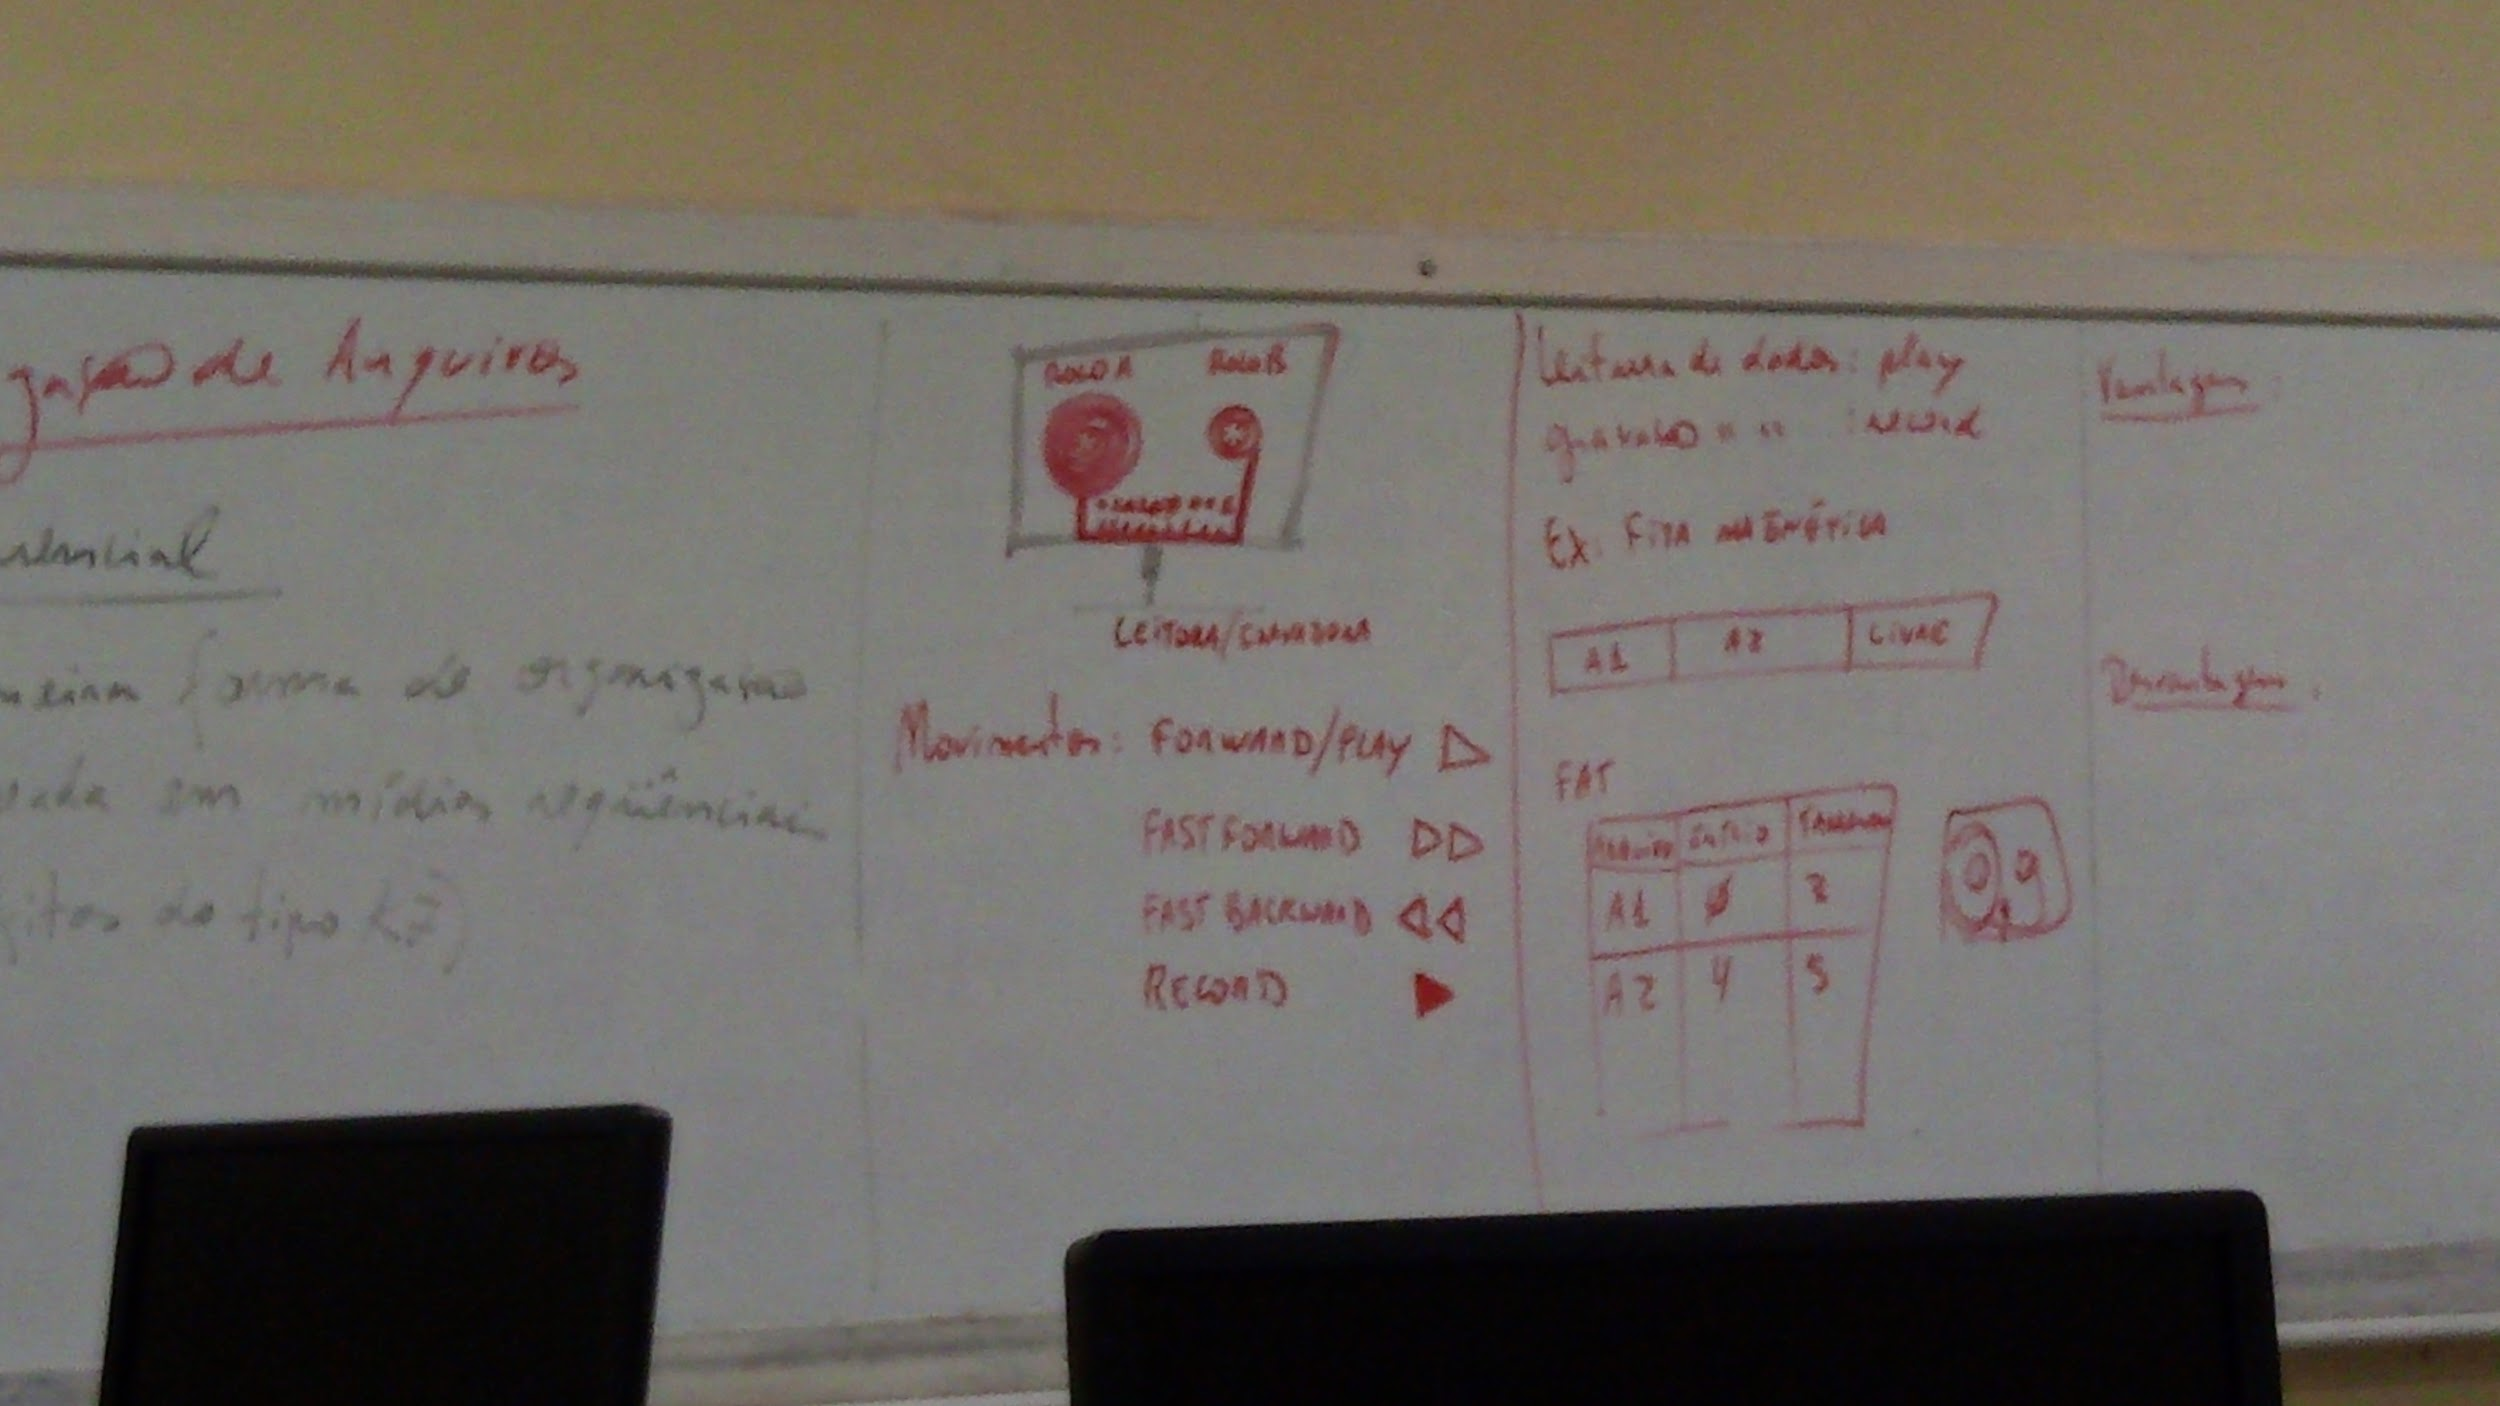 gação de Arquivos
uencial
meira forma de organização
zada em mídias seqüênciais
fitas do tipo K7)
ROLO A ROLO B
LEITORA/GRAVADORA
Movimentos: FORWARD/PLAY
FAST FORWARD
FAST BACKWARD
RECORD
Leitura de dados: play
gravação " " : record
Ex: FITA MAGNÉTICA
A1 A2 LIVRE
FAT
ARQUIVO INÍCIO TAMANHO
A1 0
A2 4 5
Vantagens:
Desvantagens: